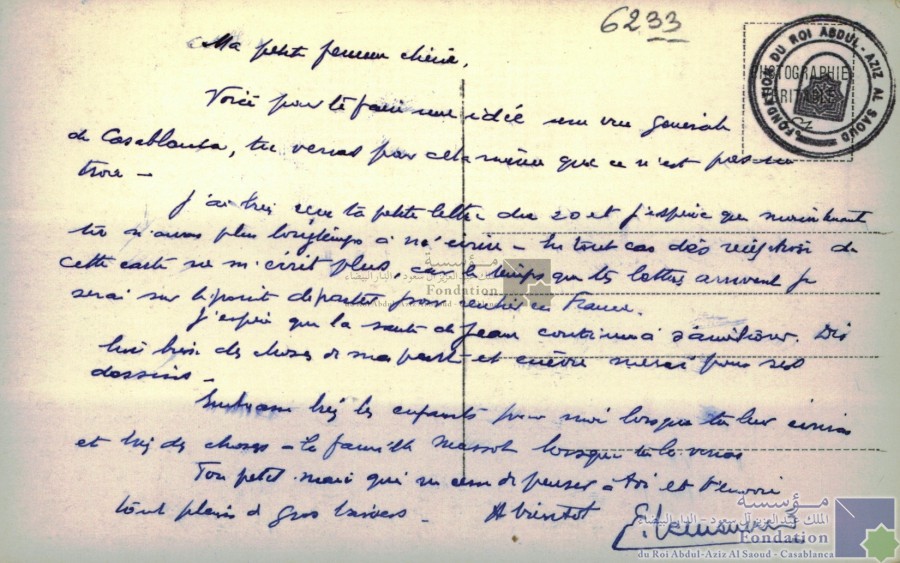 6233
FONDATION DU ROI ABDUL-AZIZ AL SAOUD
PHOTOGRAPHIE
Ma petite femme chérie,
Voici pour te faire une idée une vue générale
de Casablanca, tu verras par cela même que ce n'est pas un
trou —
J'ai bien reçu ta petite lettre du 20 et j'espère que maintenant
tu n'auras plus longtemps à m'écrire — En tout cas dès réception de
cette carte ne m'écrit plus car le temps que tes lettres arrivent je
serai sur le point de partir pour rentrer en France.
J'espère que la santé de Jean continue à s'améliorer. Dis
lui bien des choses de ma part et encore merci pour ses
dessins —
Embrasse bien les enfants pour moi lorsque tu leur écriras
et bien des choses à la famille lorsque tu la verras
Ton petit mari qui ne cesse de penser à toi et t'envoie
tout plein de gros baisers — A bientôt
مؤسسة
الملك عبد العزيز آل سعود - الدار البيضاء
Fondation
du Roi Abdul-Aziz Al Saoud - Casablanca
مؤسسة
الملك عبد العزيز آل سعود - الدار البيضاء
Fondation
du Roi Abdul-Aziz Al Saoud - Casablanca